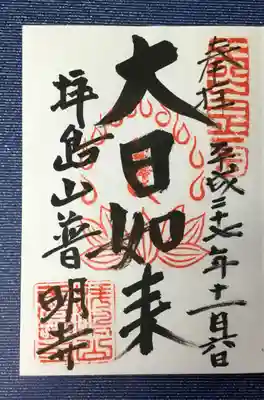 奉拝 平成二十七年十一月六日
大日如来
拝島山普明寺